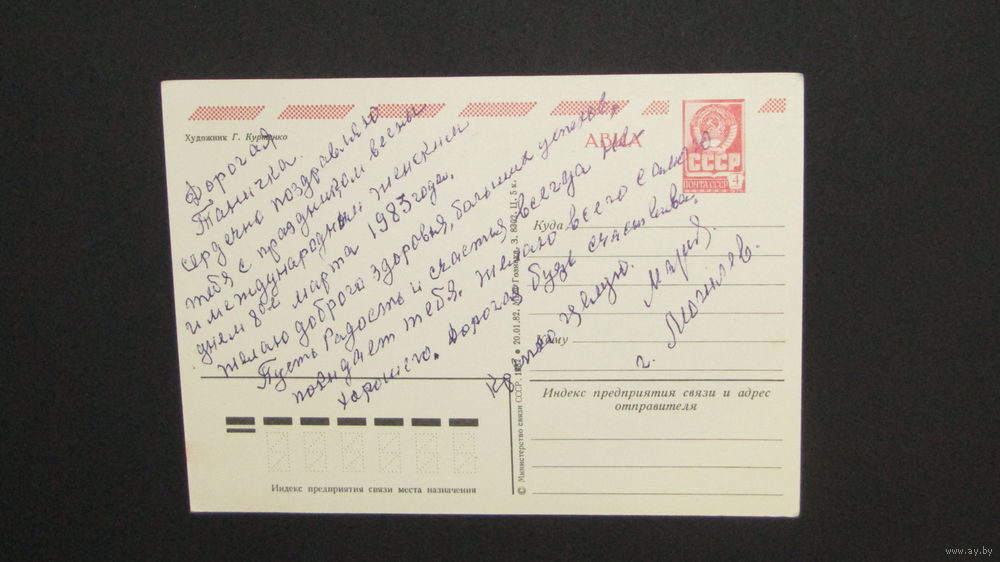 Художник Г. Куртенко
АВИА
СССР
ПОЧТА СССР
4
Дорогая
Таничка.
сердечно поздравляю
тебя с праздником весны
и международным женским
днем 8ое марта 1983 года.
желаю доброго здоровья, больших успехов,
Пусть Радость и счастья всегда
тебя. Желаю всего самого
хорошего. Дорогая, будь счастлива.
Крепко целую. Мария.
г. Могилев.
Куда
Кому
Индекс предприятия связи и адрес
отправителя
Индекс предприятия связи места назначения
© Министерство связи СССР. 20.01.82. Гознака. З. Ц. 5 к.
www.ay.by